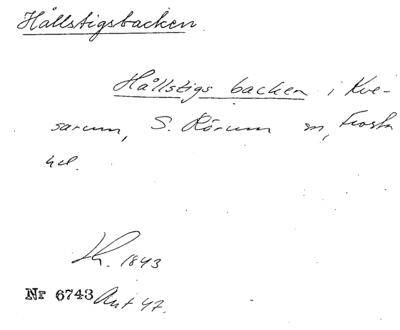 Hållstigsbacken
Hållstigs backen i Kve-
sarum, S. Rörum sn, Frosta
hd.
Kr. 1843
Nr 6743 Ant 47.